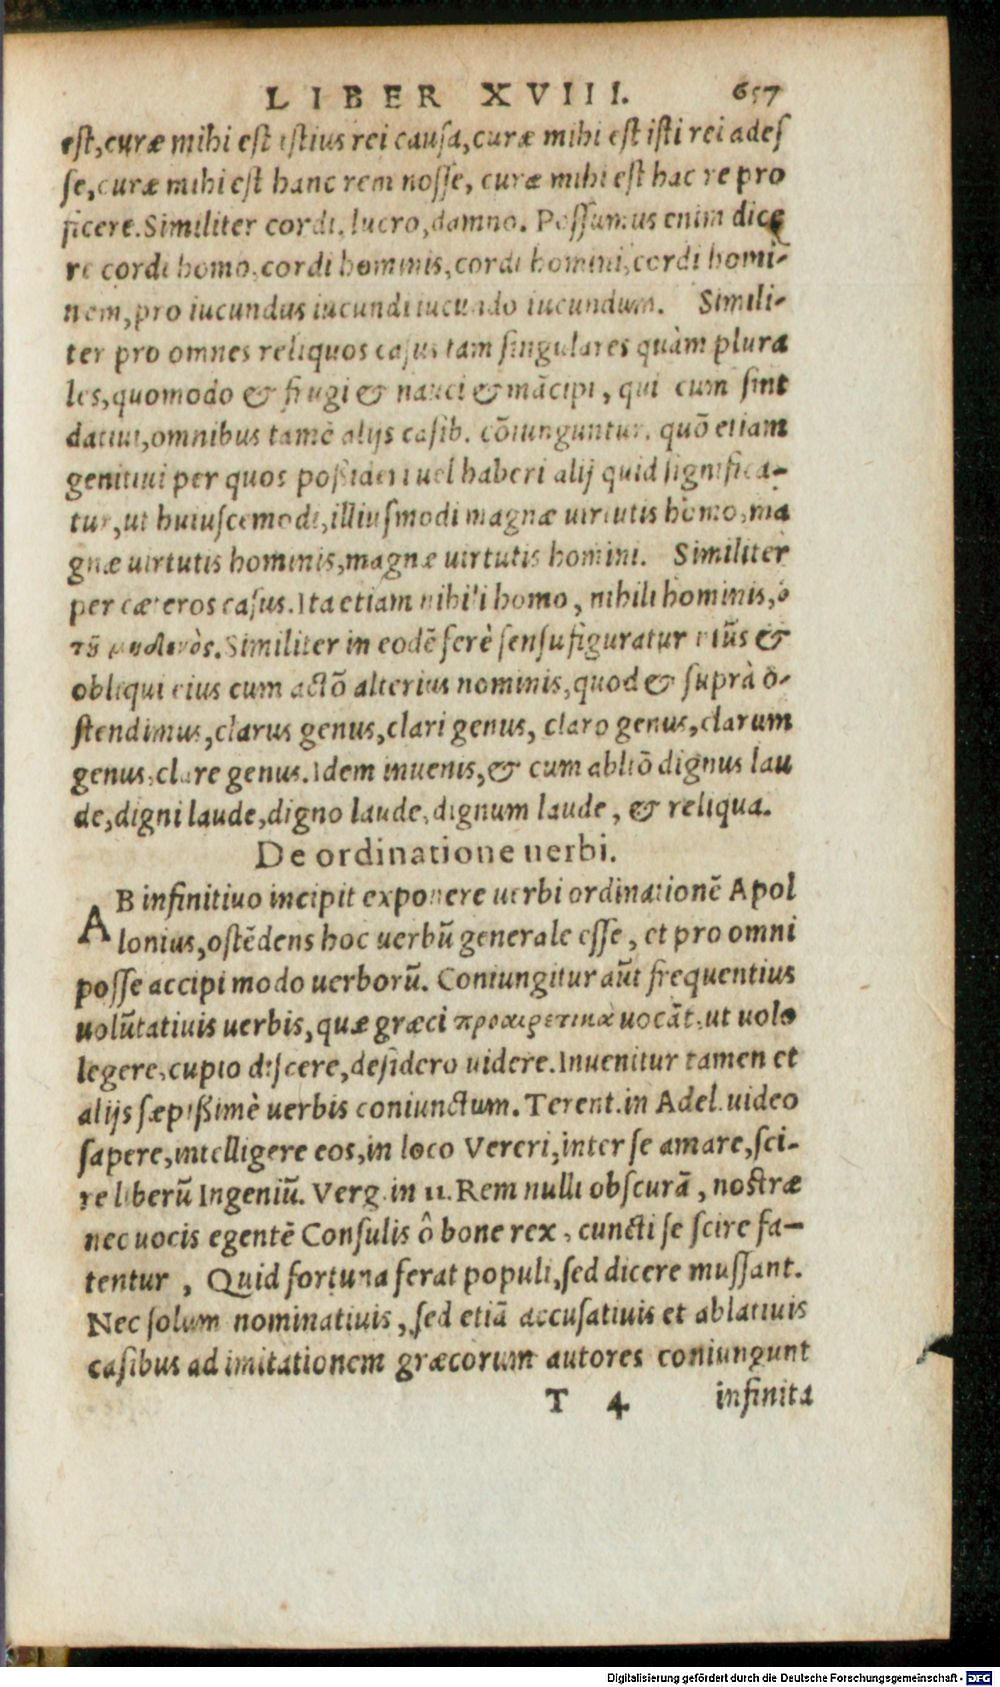 LIBER XVIII. 657
est, curæ mihi est istius rei causa, curæ mihi est isti rei ades
se, curæ mihi est hanc rem nosse, curæ mihi est hac re pro
ficere. Similiter cordi, lucro, damno. Possumus enim dice
re cordi homo, cordi hominis, cordi homini, cordi homi-
nem, pro iucundus iucundi iucundo iucundum. Simili-
ter pro omnes reliquos casus tam singulares quàm plura
les, quomodo & frugi & nauci & mācipi, qui cum sint
datiui, omnibus tamē alijs casib. cōiunguntur. quō etiam
genitiui per quos possideri uel haberi alij quid significa-
tur, ut huiuscemodi, illiusmodi magnæ uirtutis homo, ma
gnæ uirtutis hominis, magnæ uirtutis homini. Similiter
per cæteros casus. Ita etiam nihili homo, nihili hominis, ὁ
τοῦ μηδενὸς. Similiter in eodē ferè sensu figuratur &
obliqui eius cum actō alterius nominis, quod & suprà o-
stendimus, clarus genus, clari genus, claro genus, clarum
genus, clare genus. Idem inuenis, & cum abltō dignus lau
de, digni laude, digno laude, dignum laude, & reliqua.
De ordinatione uerbi.
AB infinitiuo incipit exponere uerbi ordinationē Apol
lonius, ostēdens hoc uerbū generale esse, et pro omni
posse accipi modo uerborū. Coniungitur aūt frequentius
uolūtatiuis uerbis, quæ græci προαιρετικὰ uocāt, ut uolo
legere, cupio discere, desidero uidere. Inuenitur tamen et
alijs sæpißimè uerbis coniunctum. Terent. in Adel. uideo
sapere, intelligere eos, in loco Vereri, inter se amare, sci-
re liberū Ingeniū. Verg. in 11. Rem nulli obscurā, nostræ
nec uocis egentē Consulis ô bone rex, cuncti se scire fa-
tentur, Quid fortuna ferat populi, sed dicere mussant.
Nec solum nominatiuis, sed etiā accusatiuis et ablatiuis
casibus ad imitationem græcorum autores coniungunt
T 4 infinita
Digitalisierung gefördert durch die Deutsche Forschungsgemeinschaft - DFG